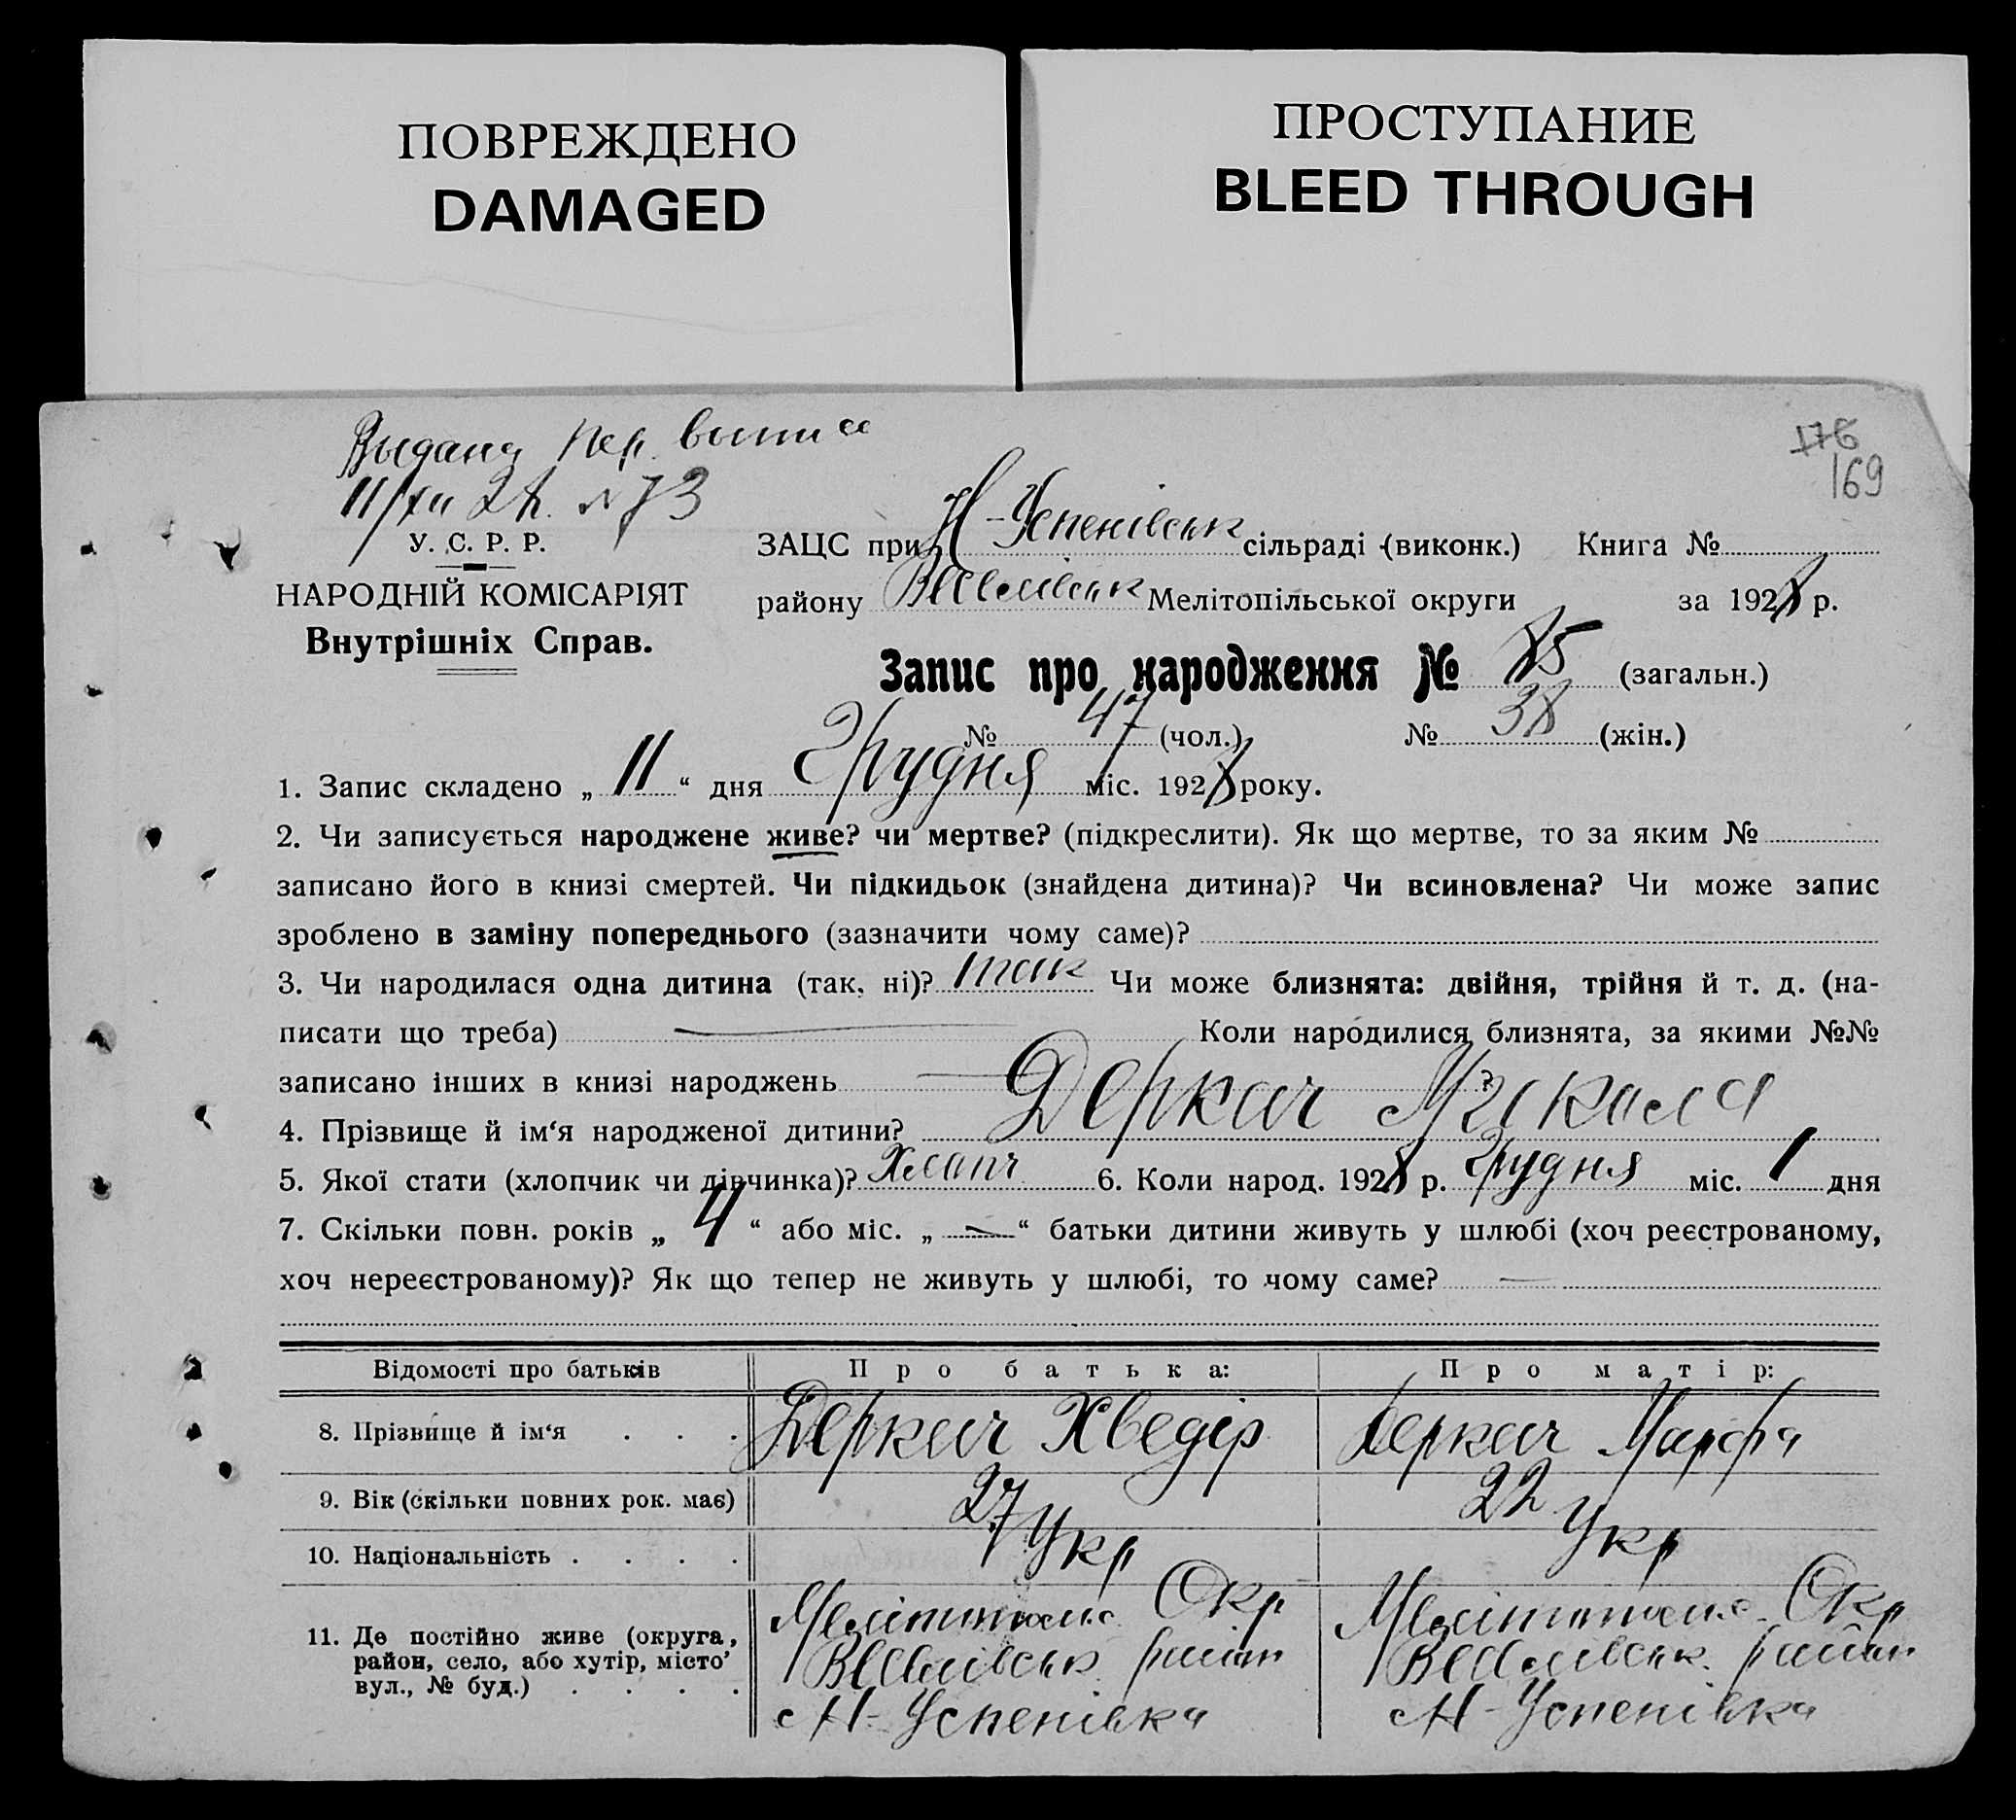 ПОВРЕЖДЕНО
DAMAGED
ПРОСТУПАНИЕ
BLEED THROUGH
Выдана
11/XII № 73
176
169
У. С. Р. Р.
НАРОДНІЙ КОМІСАРІЯТ
Внутрішніх Справ.
ЗАЦС при Н-Успенівськ сільраді (виконк.) Книга №
району Веселівськ Мелітопільської округи за 1928 р.
Запис про народження № 85 (загальн.)
№ 47 (чол.) № 38 (жін.)
1. Запис складено „ 11 “ дня Грудня міс. 1928 року.
2. Чи записується народжене живе? чи мертве? (підкреслити). Як що мертве, то за яким №
записано його в книзі смертей. Чи підкидьок (знайдена дитина)? Чи всиновлена? Чи може запис
зроблено в заміну попереднього (зазначити чому саме)?
3. Чи народилася одна дитина (так, ні)? так Чи може близнята: двійня, трійня й т. д. (на-
писати що треба) Коли народилися близнята, за якими №№
записано інших в книзі народжень ?
4. Прізвище й ім‘я народженої дитини? Деркач Микола
5. Якої стати (хлопчик чи дівчинка)? Хлопч 6. Коли народ. 1928 р. Грудня міс. 1 дня
7. Скільки повн. років „ 4 “ або міс. „ — “ батьки дитини живуть у шлюбі (хоч реєстрованому,
хоч нереєстрованому)? Як що тепер не живуть у шлюбі, то чому саме? —
Відомості про батьків Про батька: Про матір:
8. Прізвище й ім‘я . . . Деркач Хведір Деркач Марфа
9. Вік (скільки повних рок. має) 27 22
10. Національність . . . . Укр Укр
11. Де постійно живе (округа,
район, село, або хутір, місто
вул., № буд.) . . . .
Мелітопольс. Окр
Веселівськ. район
с Н-Успенівка
Мелітопольс. Окр
Веселівськ. район
с Н-Успенівка